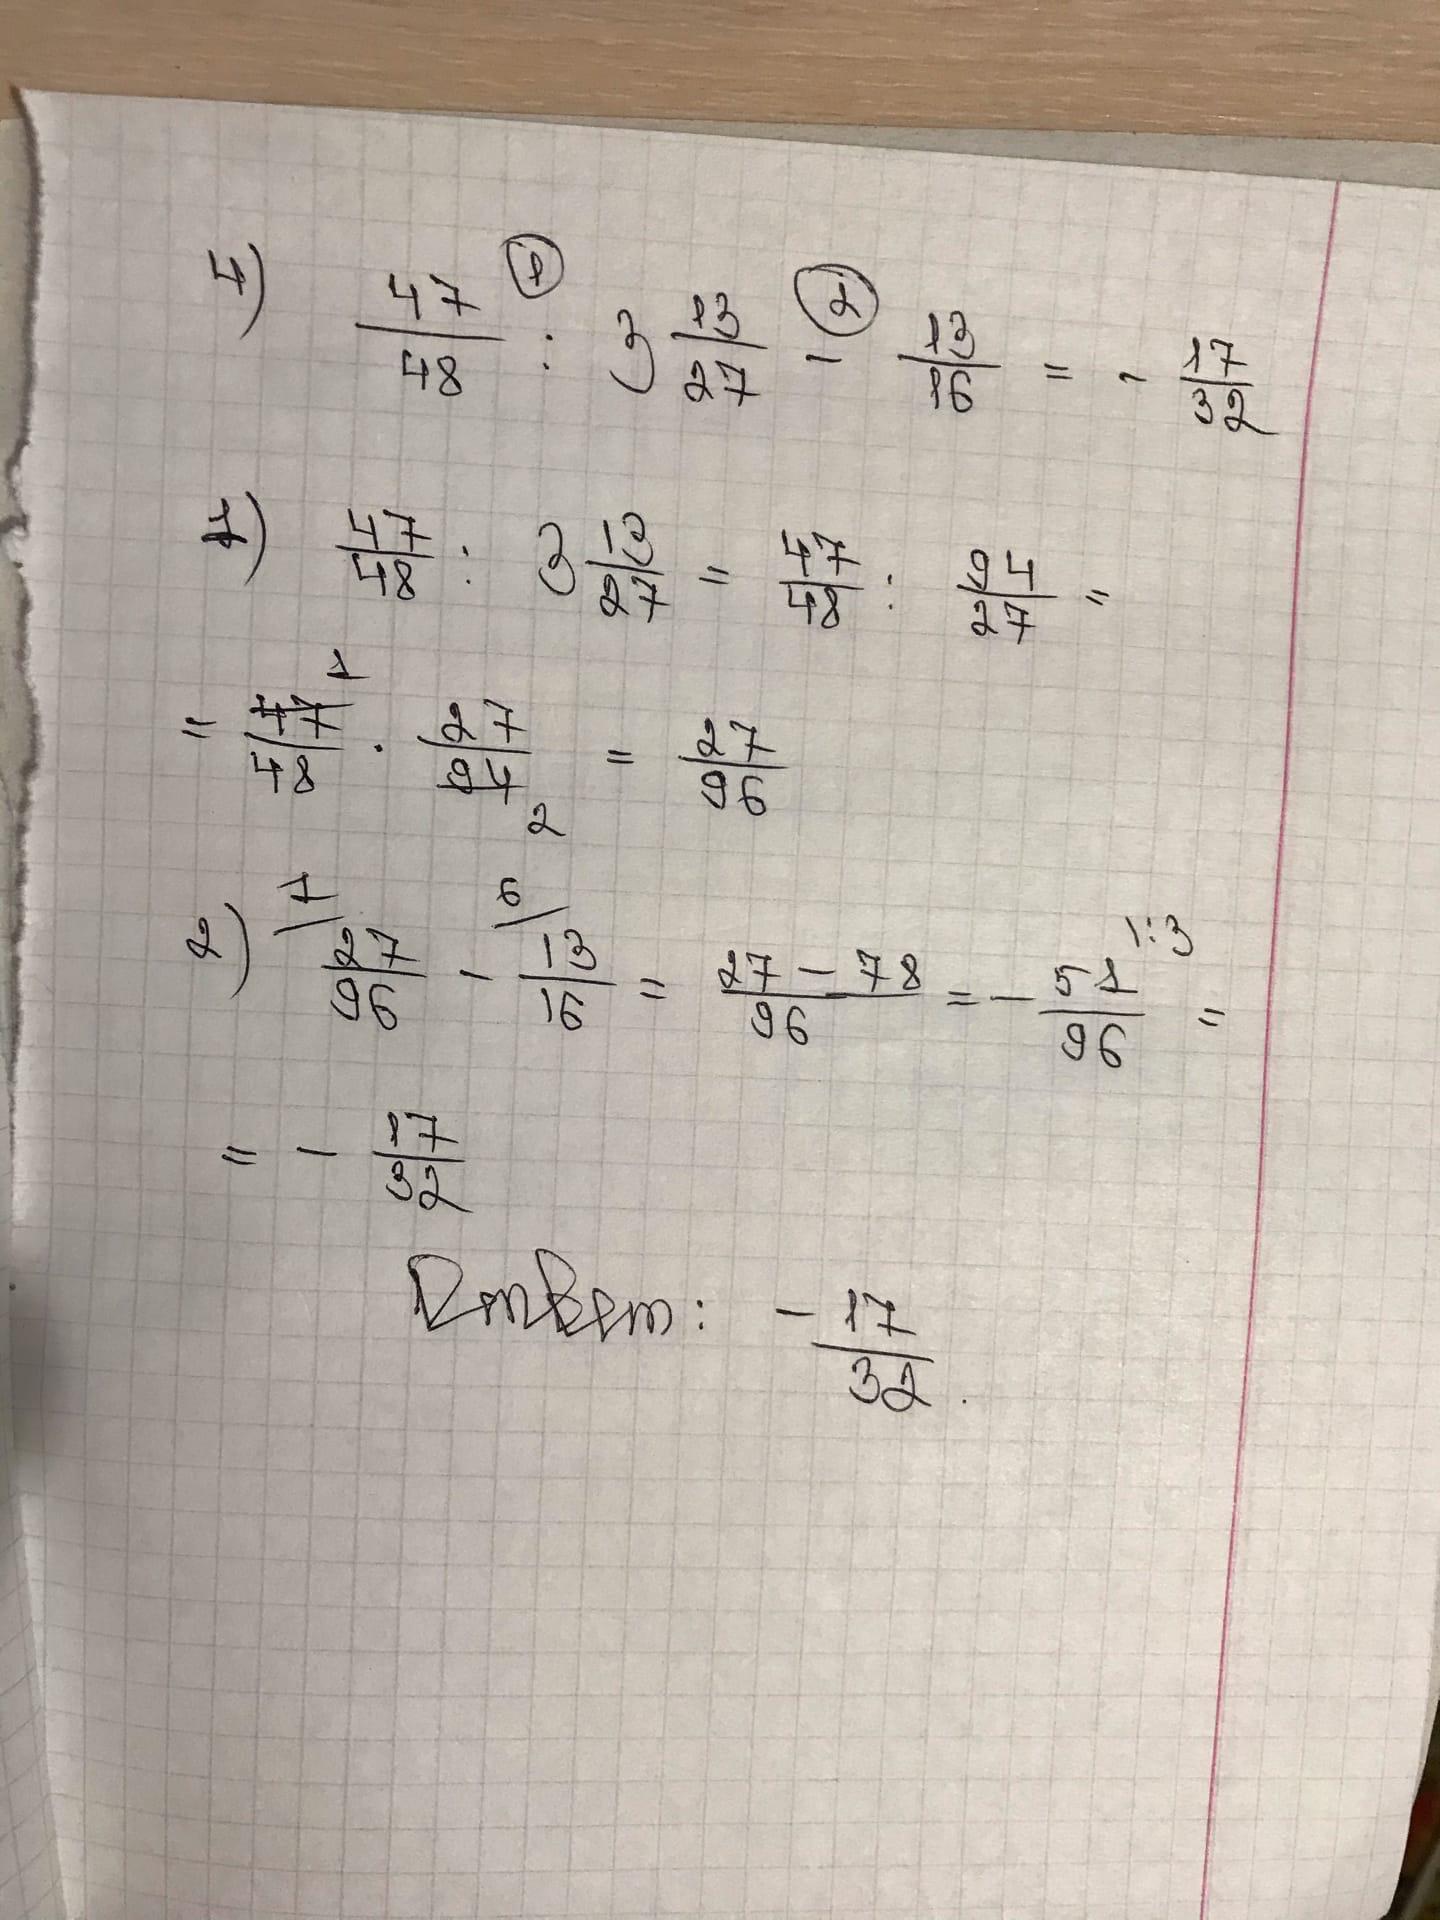 4) 47/48 : 3 13/27 - 13/16 = - 17/32
① ②
1) 47/48 : 3 13/27 = 47/48 : 94/27 =
= 47/48 · 27/94 = 27/96
1 2
2) 27/96 - 13/16 = 27-78/96 = - 51/96 =
1/ 6/ |:3
= - 17/32
Ответ: - 17/32.